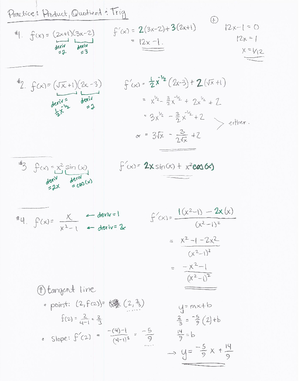 Practice: Product, Quotient + Trig
#1 f(x) = (2x+1)(3x-2)
deriv =2
deriv =3
f'(x) = 2(3x-2) + 3(2x+1)
= 12x - 1
12x-1=0
12x=1
x=1/12
#2 f(x) = (√x+1)(2x-3)
deriv = ½x^-1/2
deriv =2
f'(x) = ½x^-1/2(2x-3) + 2(√x+1)
= x^1/2 - 3/2 x^-1/2 + 2x^1/2 + 2
= 3x^1/2 - 3/2 x^-1/2 + 2
or = 3√x - 3/(2√x) + 2
either.
#3 f(x) = x² sin(x)
deriv =2x
deriv =cos(x)
f'(x) = 2x sin(x) + x² cos(x)
#4 f(x) = x/(x²-1)
← deriv = 1
f'(x) = (1(x²-1) - 2x(x))/(x²-1)²
= (x²-1-2x²)/(x²-1)²
= (-x²-1)/(x²-1)²
tangent line
• point: (2, f(2)) (2, 2/3)
f(2) = 2/(4-1) = 2/3
• slope: f'(2) = (-(4)-1)/(4-1)² = -5/9
y=mx+b
2/3 = -5/9(2)+b
14/9 = b
→ y = -5/9 x + 14/9